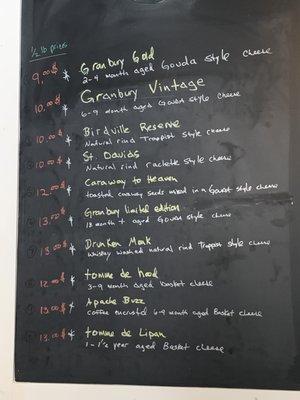 1/2 lb prices
9.00$ * Granbury Gold
2-4 month aged Gouda style cheese
10.00$ * Granbury Vintage
6-9 month aged Gouda style cheese
10.00$ * Birdville Reserve
Natural rind Trappist style cheese
10.00$ * St. Davids
Natural rind raclette style cheese
12.00$ * Caraway to Heaven
toasted caraway seeds mixed in a Gouda style cheese
13.00$ * Granbury limited edition
18 month + aged Gouda style cheese
13.00$ * Drunken Monk
whiskey washed natural rind Trappist style cheese
12.00$ * tomme de hood
3-9 month aged basket cheese
13.00$ * Apache Buzz
coffee encrusted 6-9 month aged Basket cheese
13.00$ * tomme de Lipan
1-1½ year aged Basket cheese